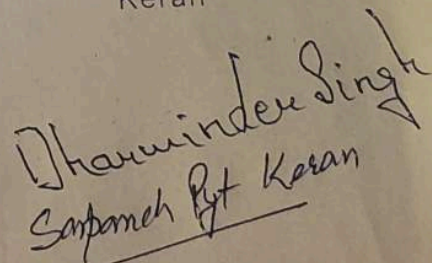 Keran
Dharwinder Singh
Sarpanch Pyt Keran